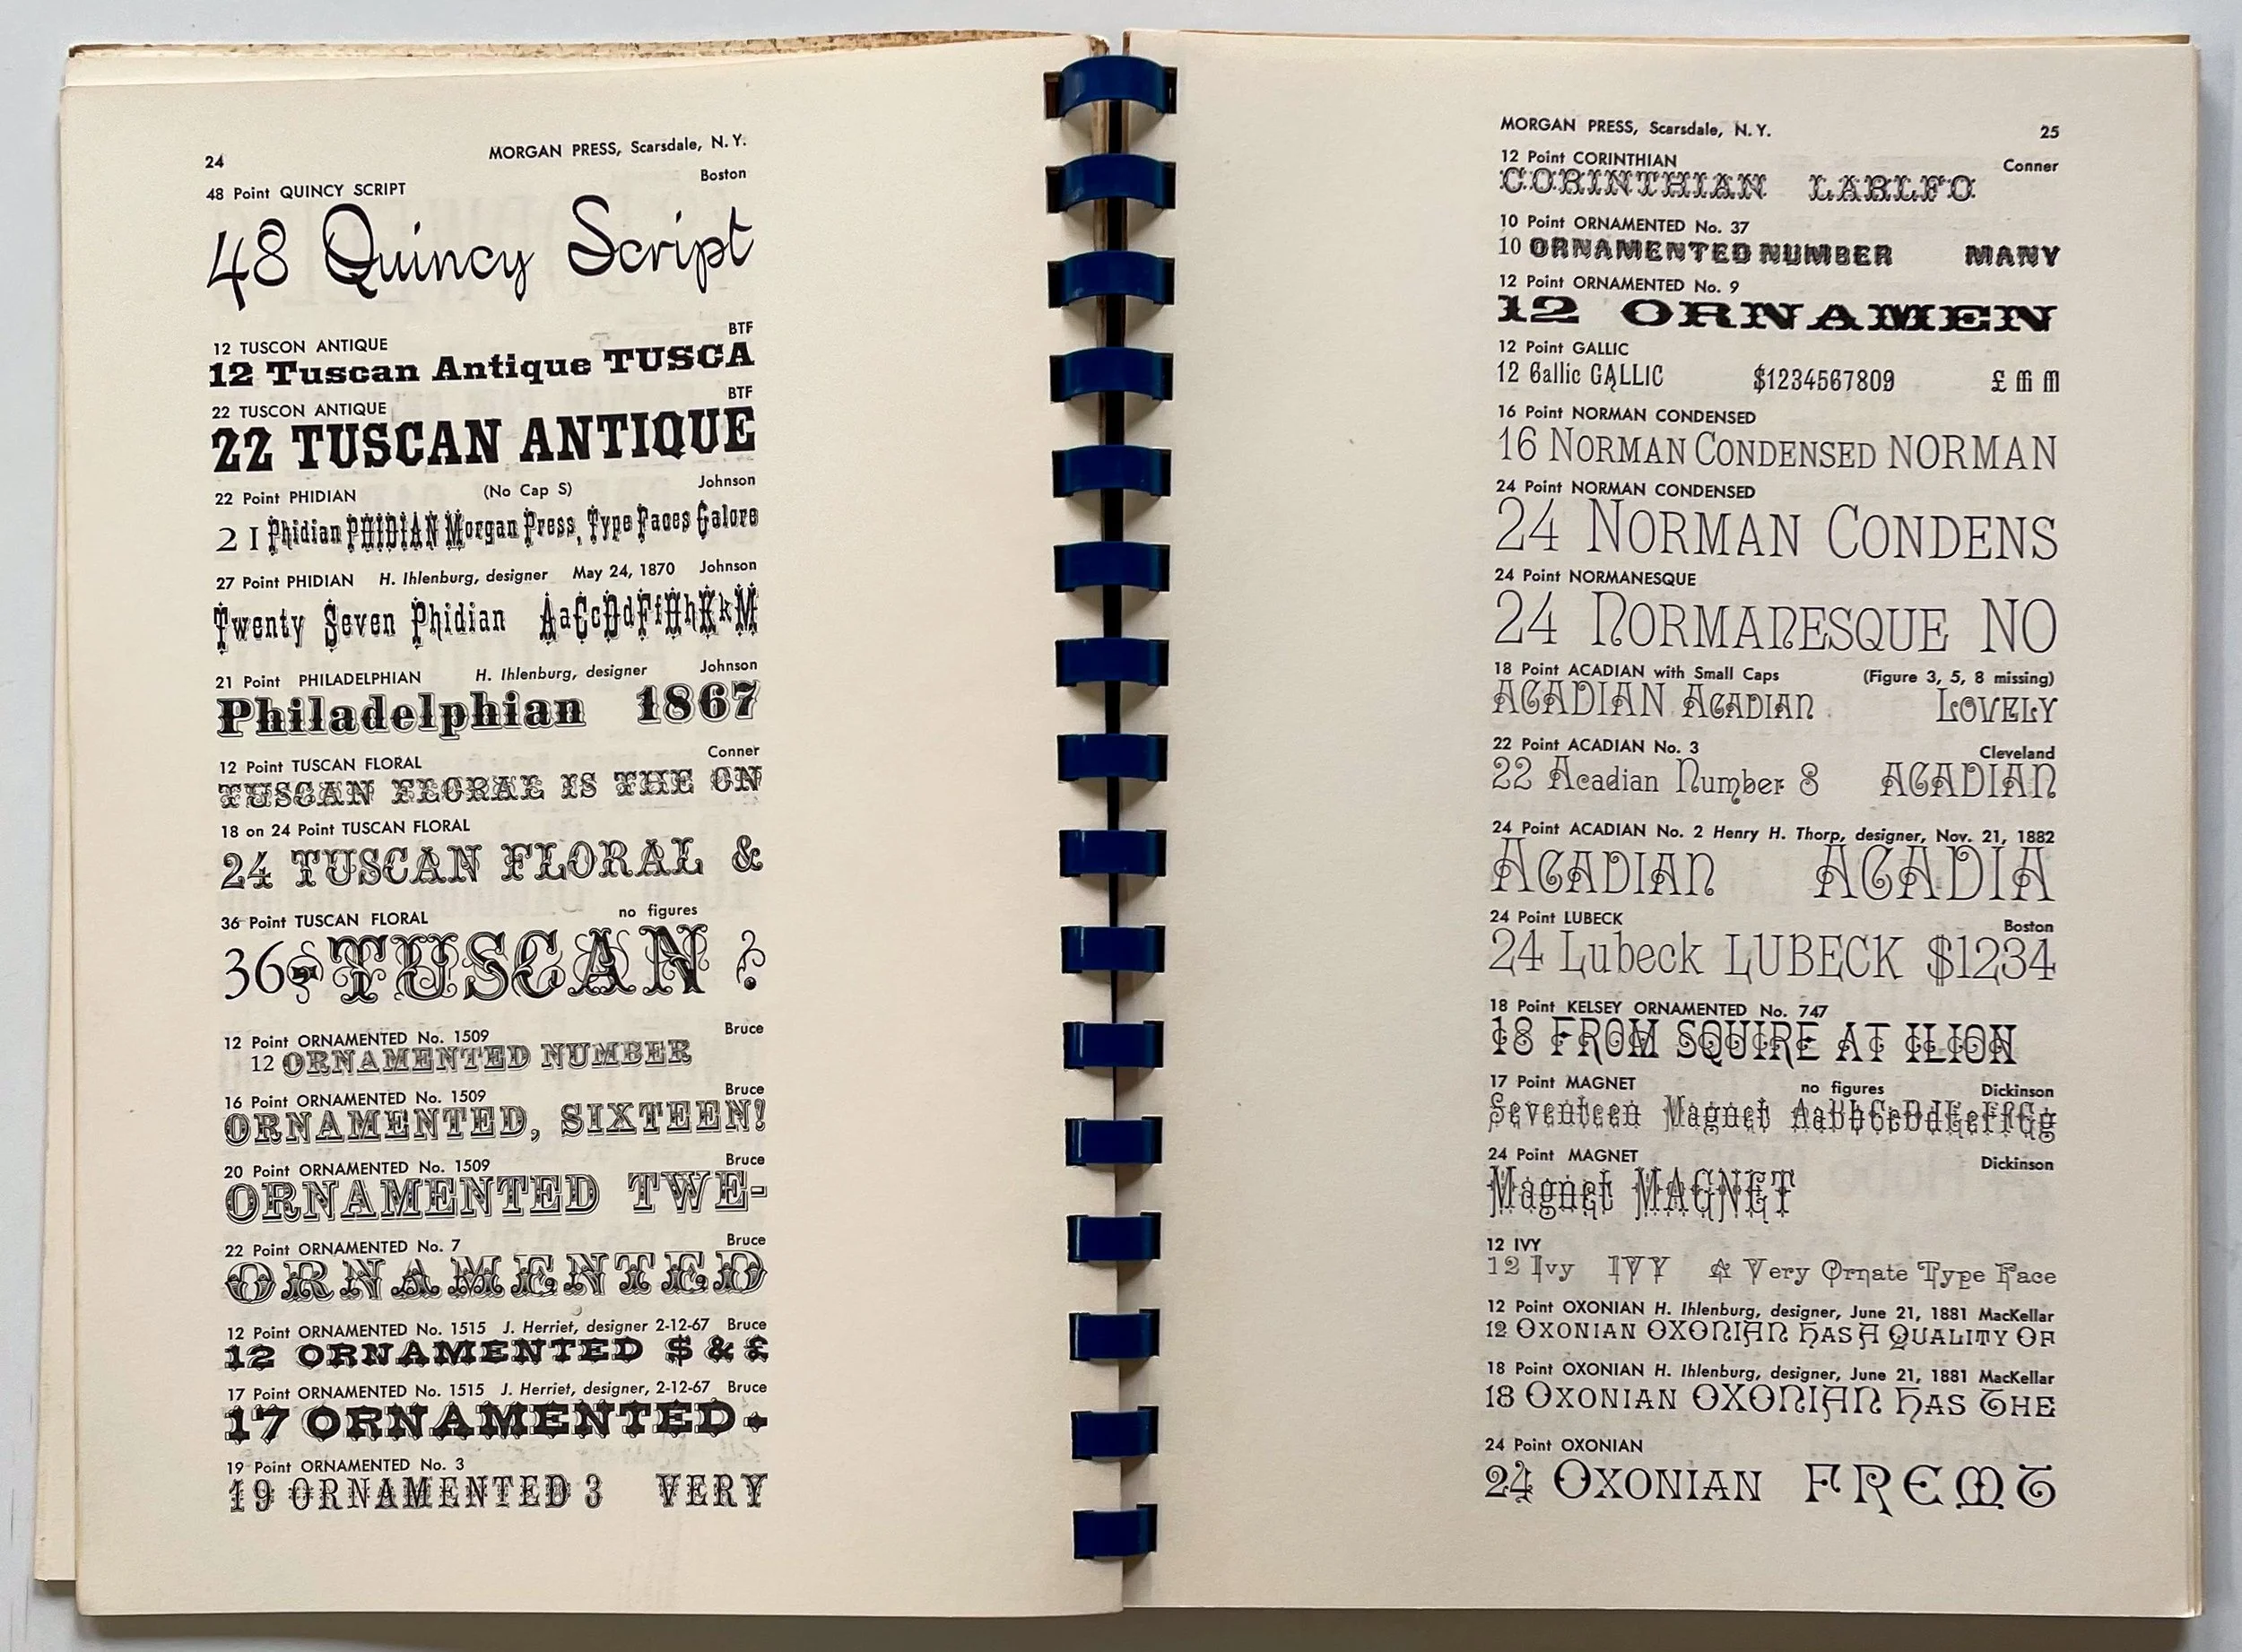 24 MORGAN PRESS, Scarsdale, N. Y.
48 Point QUINCY SCRIPT Boston
48 Quincy Script
12 TUSCON ANTIQUE BTF
12 Tuscan Antique TUSCA
22 TUSCON ANTIQUE BTF
22 TUSCAN ANTIQUE
22 Point PHIDIAN (No Cap S) Johnson
2 1 Phidian PHIDIAN Morgan Press, Type Faces Galore
27 Point PHIDIAN H. Ihlenburg, designer May 24, 1870 Johnson
Twenty Seven Phidian AaCcDdFfHhKkM
21 Point PHILADELPHIAN H. Ihlenburg, designer Johnson
Philadelphian 1867
12 Point TUSCAN FLORAL Conner
TUSCAN FLORAL IS THE ON
18 on 24 Point TUSCAN FLORAL
24 TUSCAN FLORAL &
36 Point TUSCAN FLORAL no figures
36 TUSCAN ?
12 Point ORNAMENTED No. 1509 Bruce
12 ORNAMENTED NUMBER
16 Point ORNAMENTED No. 1509 Bruce
ORNAMENTED, SIXTEEN!
20 Point ORNAMENTED No. 1509 Bruce
ORNAMENTED TWE-
22 Point ORNAMENTED No. 7 Bruce
ORNAMENTED
12 Point ORNAMENTED No. 1515 J. Herriet, designer 2-12-67 Bruce
12 ORNAMENTED $ & £
17 Point ORNAMENTED No. 1515 J. Herriet, designer, 2-12-67 Bruce
17 ORNAMENTED
19 Point ORNAMENTED No. 3
19 ORNAMENTED 3 VERY
MORGAN PRESS, Scarsdale, N. Y. 25
12 Point CORINTHIAN Conner
CORINTHIAN LARLFO
10 Point ORNAMENTED No. 37
10 ORNAMENTED NUMBER MANY
12 Point ORNAMENTED No. 9
12 ORNAMEN
12 Point GALLIC
12 Gallic GALLIC $1234567809 £ ffi ffl
16 Point NORMAN CONDENSED
16 NORMAN CONDENSED NORMAN
24 Point NORMAN CONDENSED
24 NORMAN CONDENS
24 Point NORMANESQUE
24 NORMANESQUE NO
18 Point ACADIAN with Small Caps (Figure 3, 5, 8 missing)
ACADIAN ACADIAN LOVELY
22 Point ACADIAN No. 3 Cleveland
22 Acadian Number 3 ACADIAN
24 Point ACADIAN No. 2 Henry H. Thorp, designer, Nov. 21, 1882
ACADIAN ACADIA
24 Point LUBECK Boston
24 Lubeck LUBECK $1234
18 Point KELSEY ORNAMENTED No. 747
18 FROM SQUIRE AT ILION
17 Point MAGNET no figures Dickinson
Seventeen Magnet AaBbCcDdEeFfGg
24 Point MAGNET Dickinson
Magnet MAGNET
12 IVY
12 Ivy IVY A Very Ornate Type Face
12 Point OXONIAN H. Ihlenburg, designer, June 21, 1881 MacKellar
12 OXONIAN OXONIAN HAS A QUALITY OF
18 Point OXONIAN H. Ihlenburg, designer, June 21, 1881 MacKellar
18 OXONIAN OXONIAN HAS THE
24 Point OXONIAN
24 OXONIAN FREMT